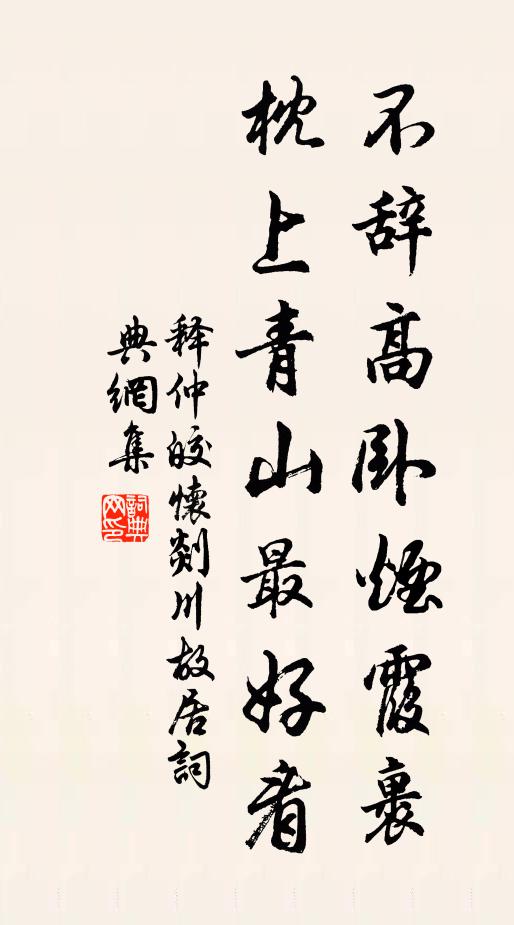 不辞高卧煙霞裏
枕上青山最好看
释仲皎懷剡川故居詞
典網集
詞典网印